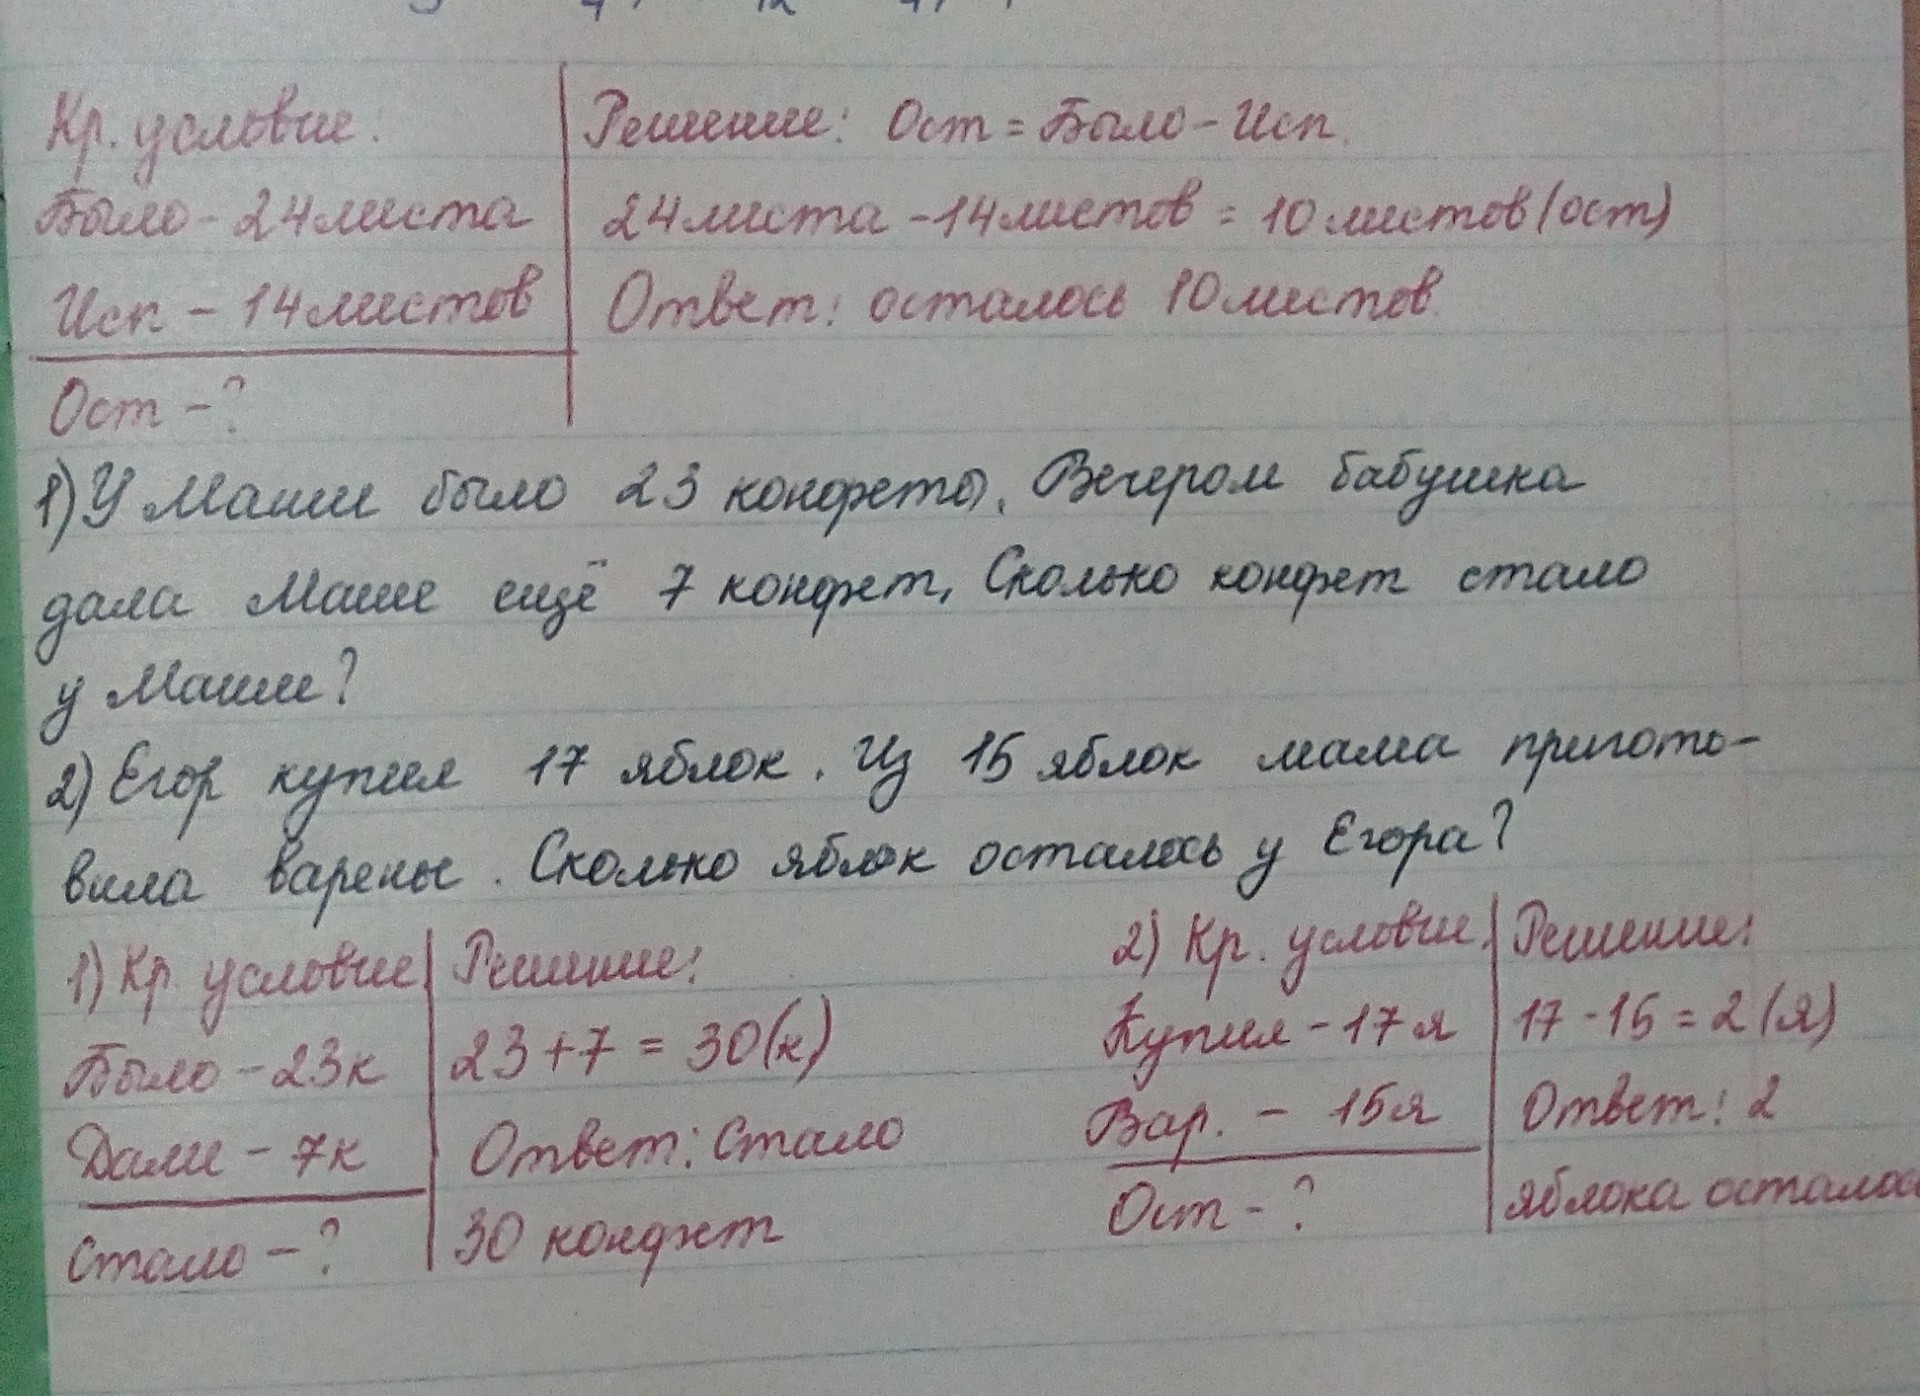 Кр. условие:
Было - 24 листа
Исп - 14 листов
Ост - ?
Решение: Ост = Было - Исп.
24 листа - 14 листов = 10 листов (ост)
Ответ: осталось 10 листов.
1) У Маши было 23 конфеты. Вечером бабушка
дала Маше ещё 7 конфет. Сколько конфет стало
у Маши?
2) Егор купил 17 яблок. Из 15 яблок мама пригото-
вила варенье. Сколько яблок осталось у Егора?
1) Кр. условие
Было - 23 к
Дали - 7 к
Стало - ?
Решение:
23 + 7 = 30 (к)
Ответ: Стало
30 конфет
2) Кр. условие.
Купил - 17 я
Вар. - 15 я
Ост - ?
Решение:
17 - 15 = 2 (я)
Ответ: 2
яблока осталось